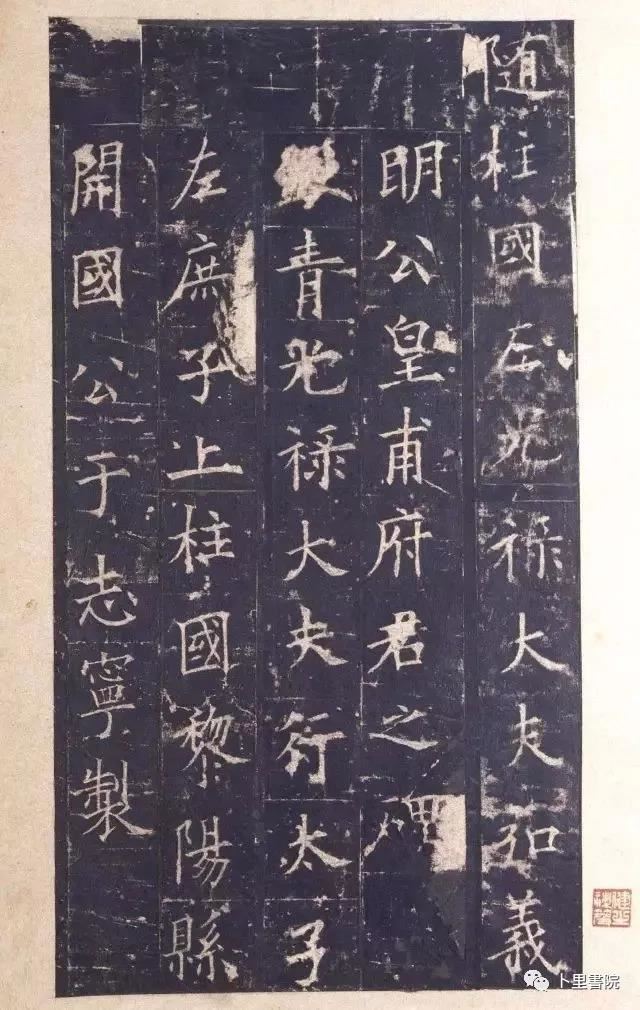 随柱國左光禄大夫弘義
明公皇甫府君之碑
銀青光禄大夫行太子
左庶子上柱國黎陽縣
開國公于志寧製
卜里書院